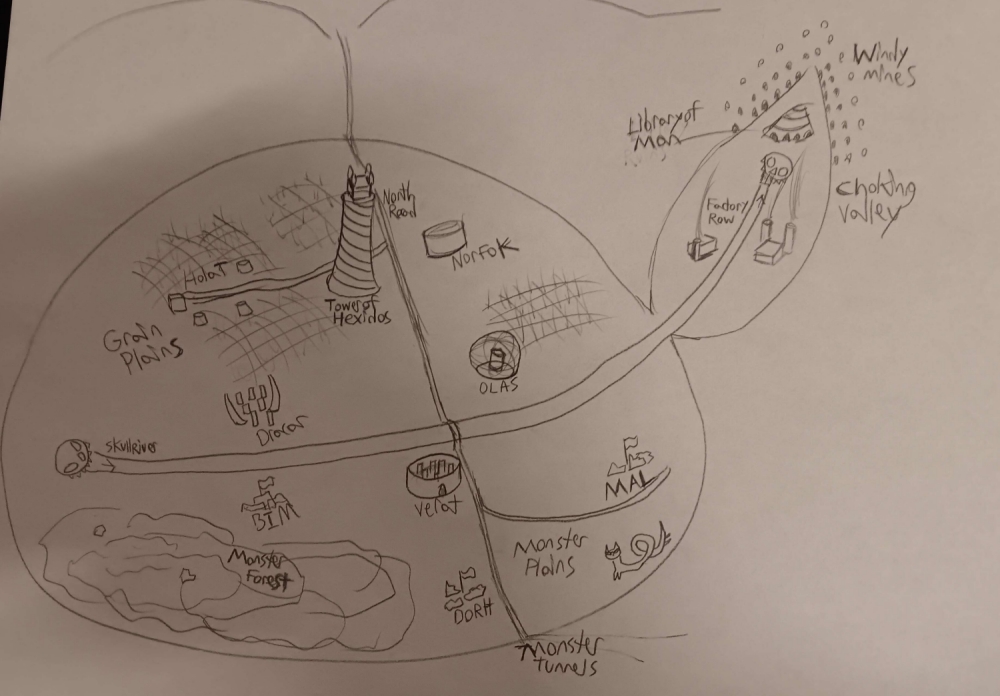 Windy
mines
Library of
Man
Choking
valley
North
Road
Factory
Row
Norfok
Holat
Tower of
Hexidos
Grain
Plains
OLAS
Dracar
Skullriver
MAL
BIM
Velat
Monster
Plains
Monster
Forest
DORH
Monster
tunnels